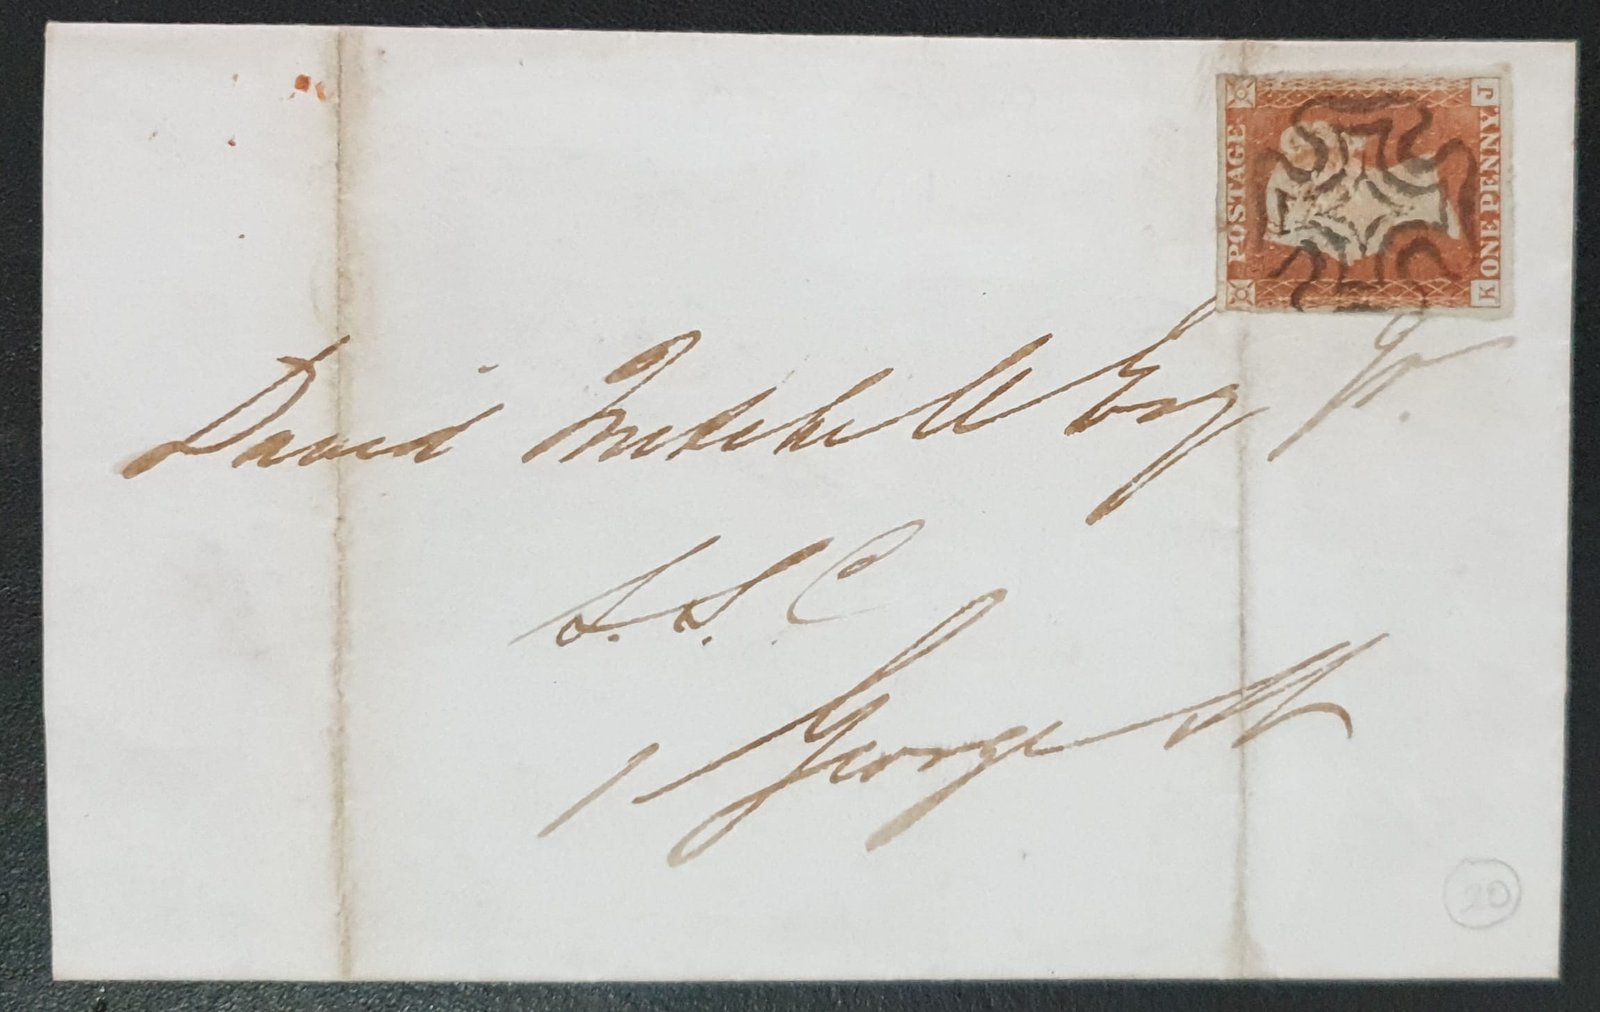 POSTAGE
J
K ONE PENNY.
David Mitchell Esq Jr.
S.S.C
1 George St
20